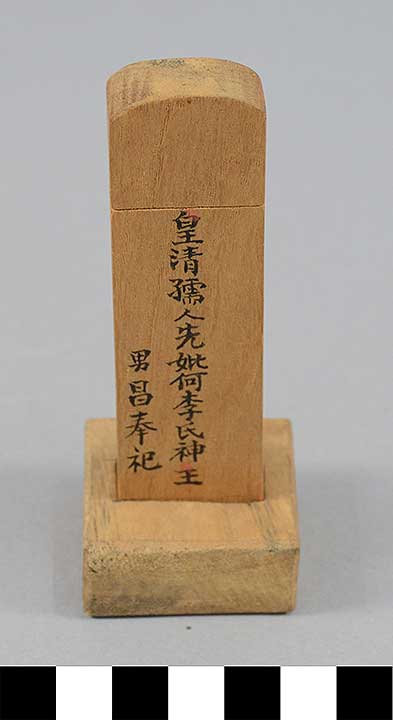 皇清孺人先妣何李氏神主
男昌奉祀